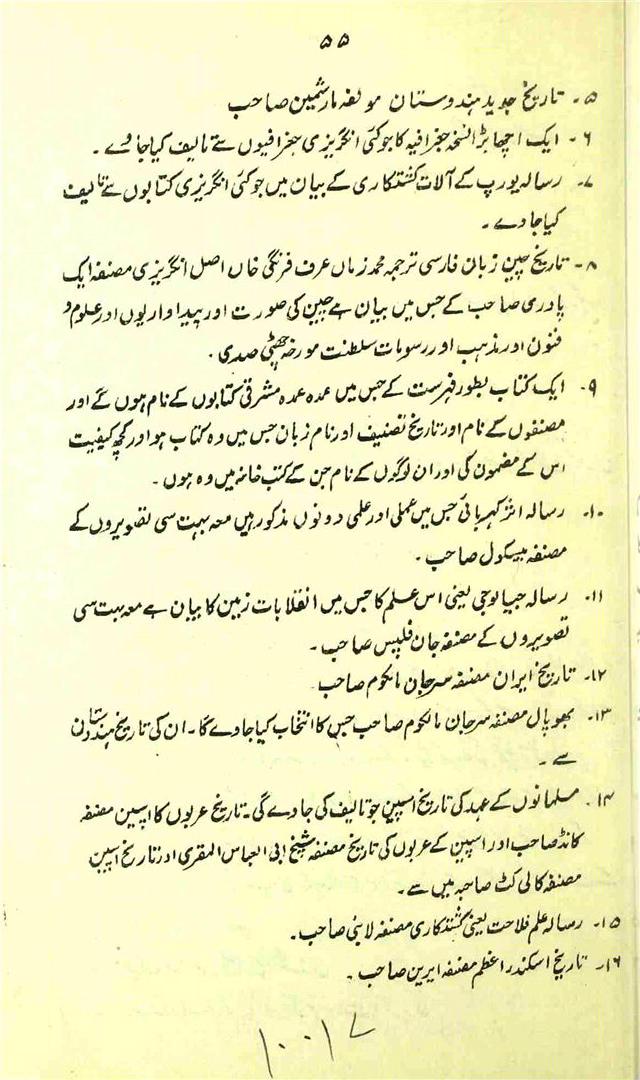 ۵۵
۵۔ تاریخ جدید ہندوستان مولفہ مارشمین صاحب
۶۔ ایک اچھا بڑا نسخہ جغرافیہ کا جو کئی انگریزی جغرافیوں سے تالیف کیا جاوے۔
۷۔ رسالہ یورپ کے آلات کشتکاری کے بیان میں جو کئی انگریزی کتابوں سے تالیف
کیا جاوے۔
۸۔ تاریخ چین زبان فارسی ترجمہ محمد زماں عرف فرنگی خاں اصل انگریزی مصنفہ ایک
پادری صاحب کے جس میں بیان ہے چین کی صورت اور پیداواریوں اور علوم و
فنون اور مذہب اور رسومات سلطنت مورخہ چھٹی صدی۔
۹۔ ایک کتاب بطور فہرست کے جس میں عمدہ عمدہ مشرقی کتابوں کے نام ہوں گے اور
مصنفوں کے نام اور تاریخ تصنیف اور نام زبان جس میں وہ کتاب ہو اور کچھ کیفیت
اس کے مضمون کی اور ان لوگوں کے نام جن کے کتب خانہ میں وہ ہوں۔
۱۰۔ رسالہ اثر کہربائی جس میں عملی اور علمی دونوں مذکور ہیں معہ بہت سی تصویروں کے
مصنفہ ہیسکول صاحب۔
۱۱۔ رسالہ جیالوجی یعنی اس علم کا جس میں انقلابات زمین کا بیان ہے معہ بہت سی
تصویروں کے مصنفہ جان فلپس صاحب۔
۱۲۔ تاریخ ایران مصنفہ سرجان مالکوم صاحب
۱۳۔ بھوپال مصنفہ سرجان مالکوم صاحب جس کا انتخاب کیا جاوے گا۔ ان کی تاریخ ہندستان
سے۔
۱۴۔ مسلمانوں کے عہد کی تاریخ اسپین جو تالیف کی جاوے گی۔ تاریخ عربوں کا اسپین مصنفہ
کانڈ صاحب اور اسپین کے عربوں کی تاریخ مصنفہ شیخ ابی العباس المقری اور تاریخ اسپین
مصنفہ کالی کٹ صاحبہ میں سے۔
۱۵۔ رسالہ علم فلاحت یعنی کشتکاری مصنفہ لابنی صاحب۔
۱۶۔ تاریخ اسکندر اعظم مصنفہ ایرین صاحب۔